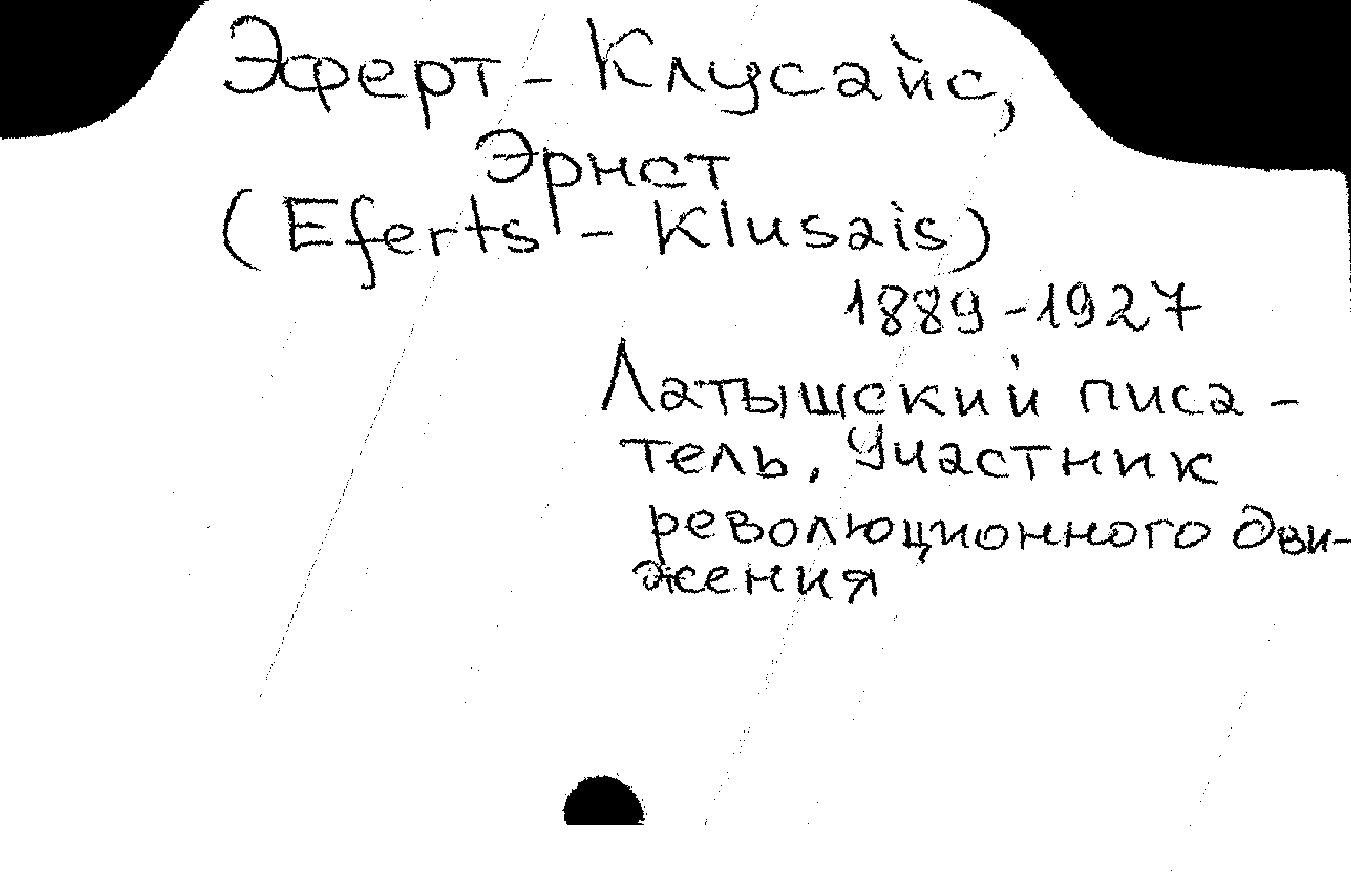 Эферт-Клусайс,
Эрнст
(Eferts - Klusais)
1889-1927
Латышский писа-
тель, участник
революционного дви-
жения